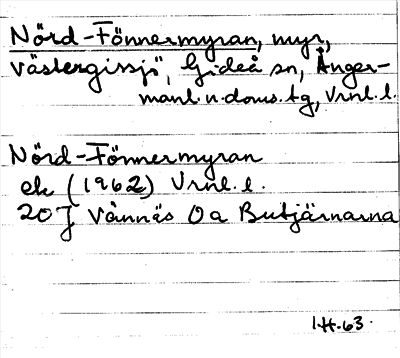 Nörd-Fönnermyran, myr,
Västergissjö, Gideå sn, Ånger-
manl. n. doms. tg, Vrnl. l.
Nörd-Fönnermyran
ek (1962) Vrnl. l.
20 J Vännäs Oa Butjärnarna
I.H.63.